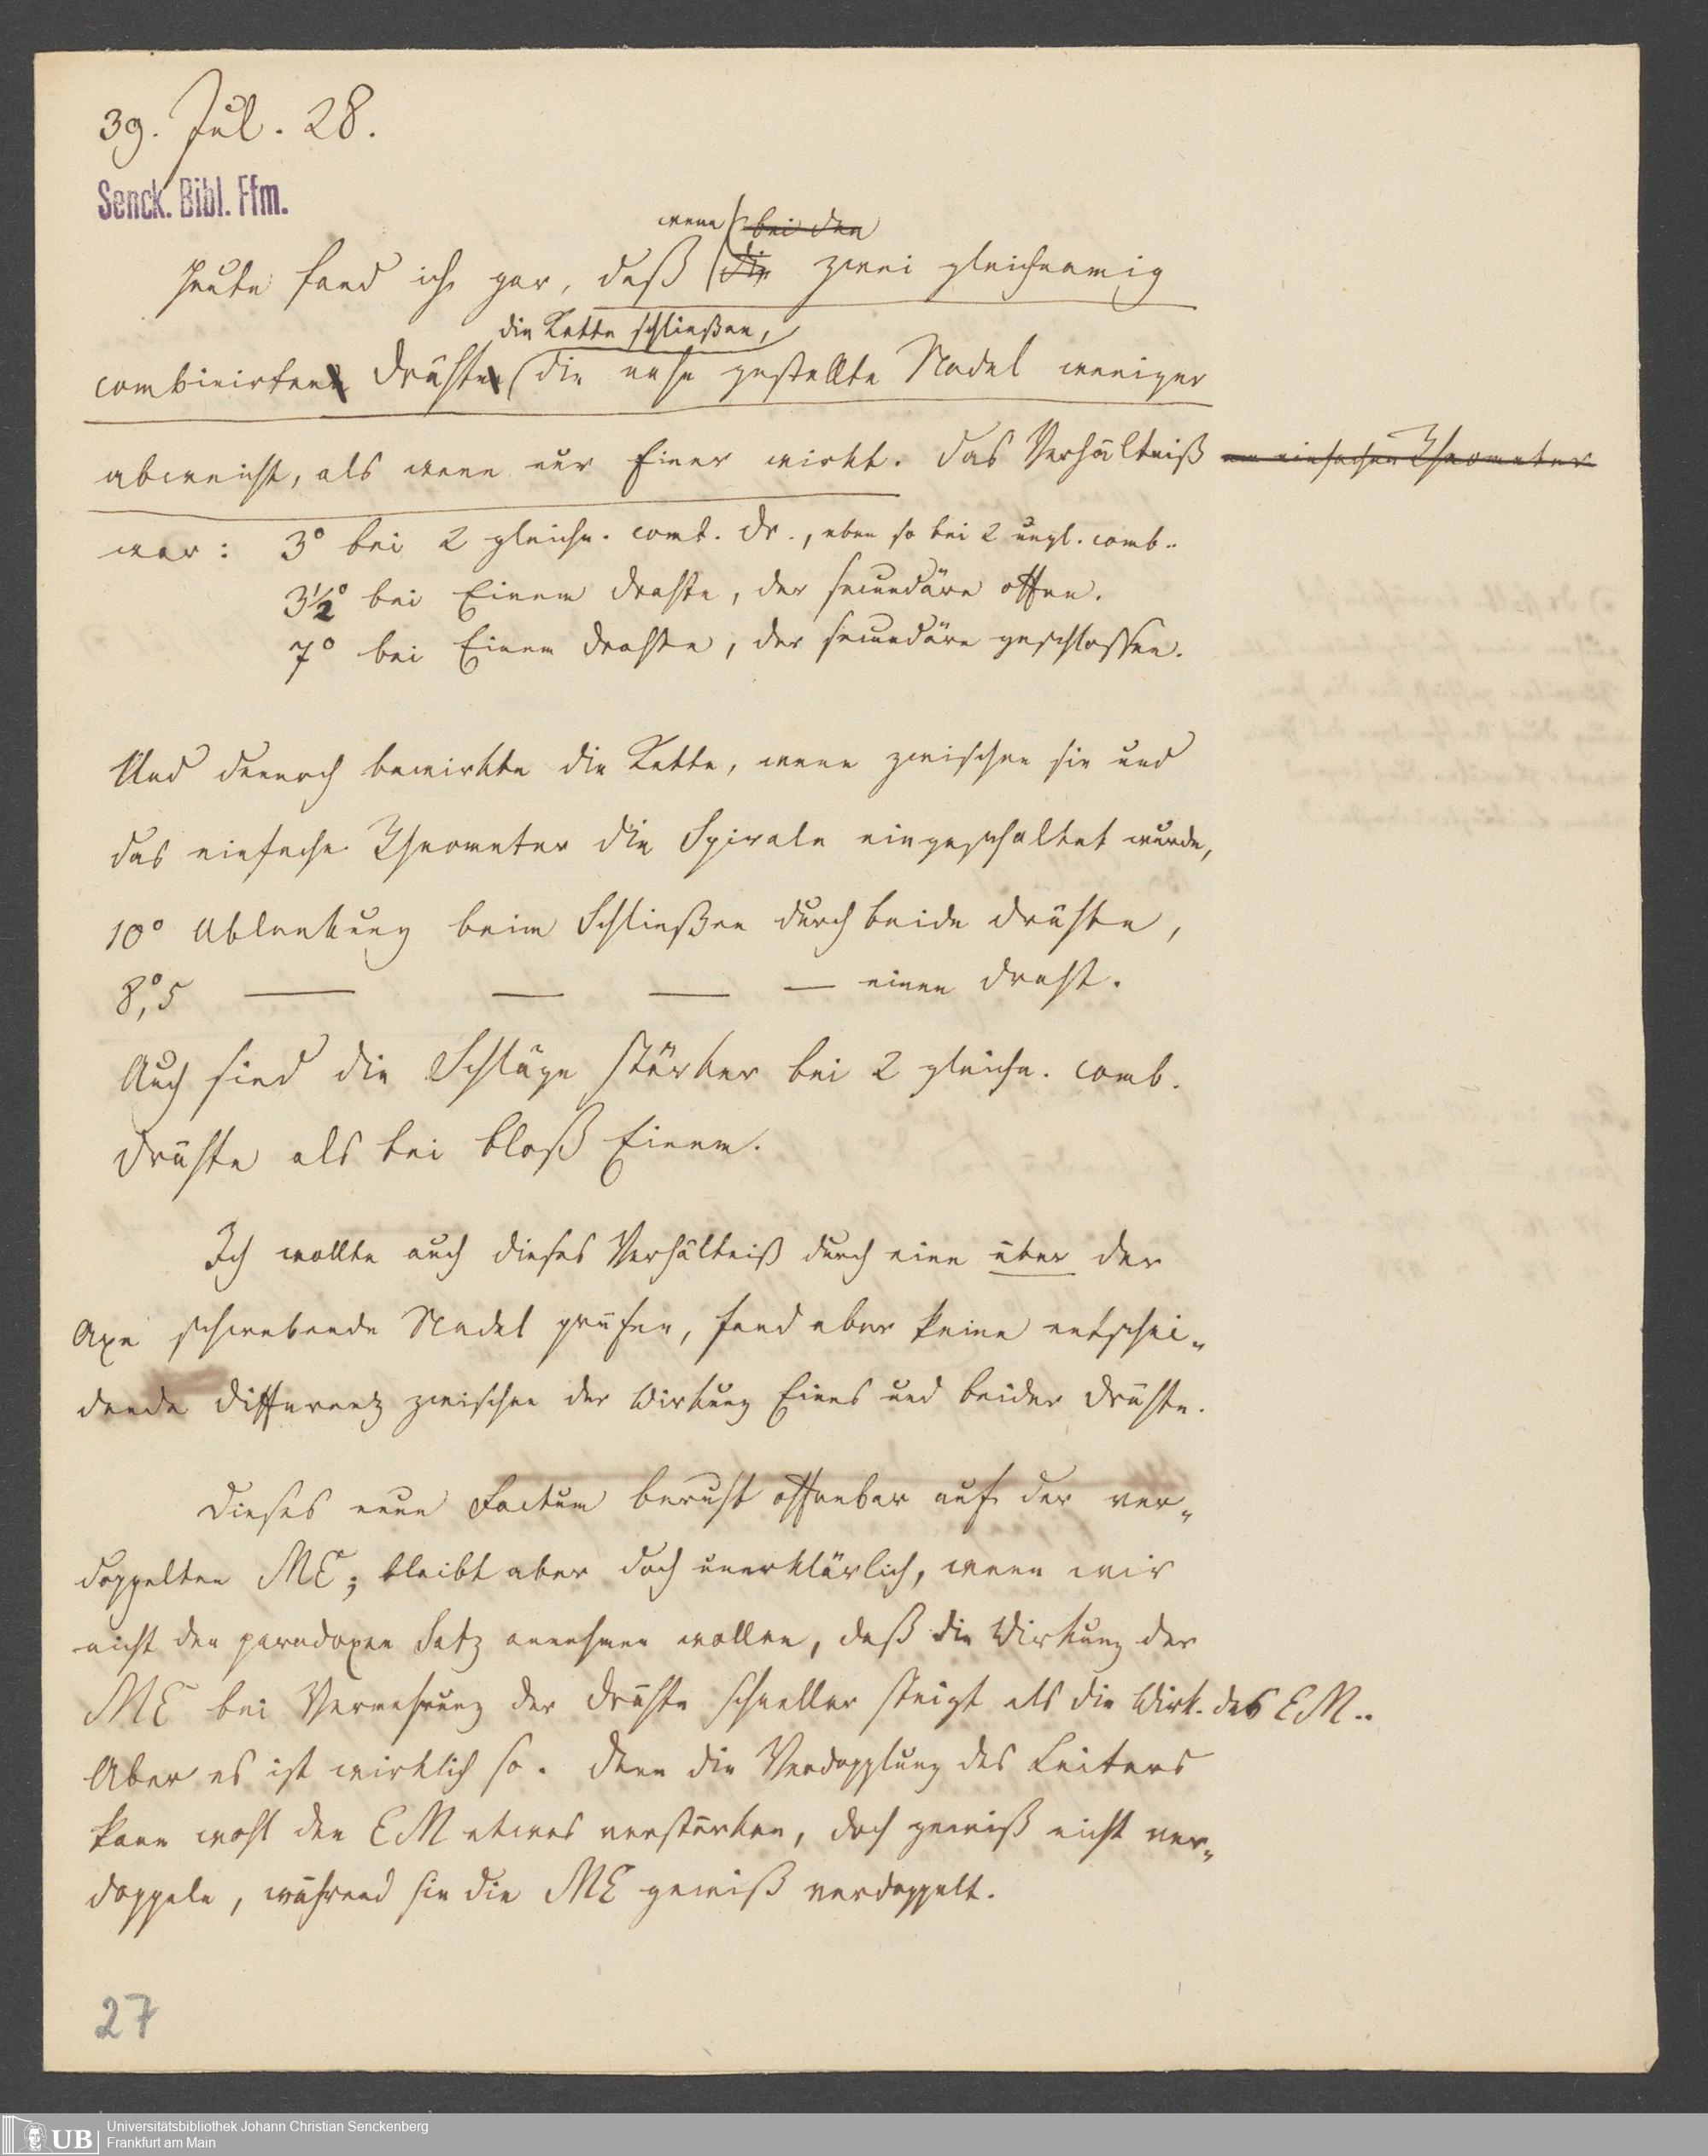 39. Jul. 28.
Senck. Bibl. Ffm.
wenn bei den
Heute fand ich gar, daß die zwei gleichnamig
die Kette schließen,
combinirten Drähte die nahe gestellte Nadel weniger
abweicht, als wenn nur Einer wirkt. Das Verhältniß am einfachen Rheometer
war: 3° bei 2 gleichn. comb. Dr., eben so bei 2 ungl. comb..
3½° bei Einem Drahte, der secundäre offen.
7° bei Einem Drahte, der secundäre geschlossen.
Und dennoch bewirkte die Kette, wenn zwischen sie und
das einfache Rheometer die Spirale eingeschaltet wurde,
10° Ablenkung beim Schließen durch beide Drähte,
8°,5 — — — — einen Draht.
Auch sind die Schläge stärker bei 2 gleichn. comb.
Drähte als bei bloß Einem.
Ich wollte auch dieses Verhältniß durch eine über der
Axe schwebende Nadel prüfen, fand aber keine entschei-
dende Differenz zwischen der Wirkung Eines und beider Drähte.
Dieses neue Factum beruht offenbar auf der ver-
doppelten ME; bleibt aber doch unerklärlich, wenn wir
nicht den paradoxen Satz annehmen wollen, daß die Wirkung der
ME bei Vermehrung der Drähte schneller steigt als die Wirk. des EM..
Aber es ist wirklich so. Denn die Verdopplung des Leiters
kann wohl den EM etwas verstärken, doch gewiß nicht ver-
doppeln, während sie die ME gewiß verdoppelt.
27
UB Universitätsbibliothek Johann Christian Senckenberg
Frankfurt am Main